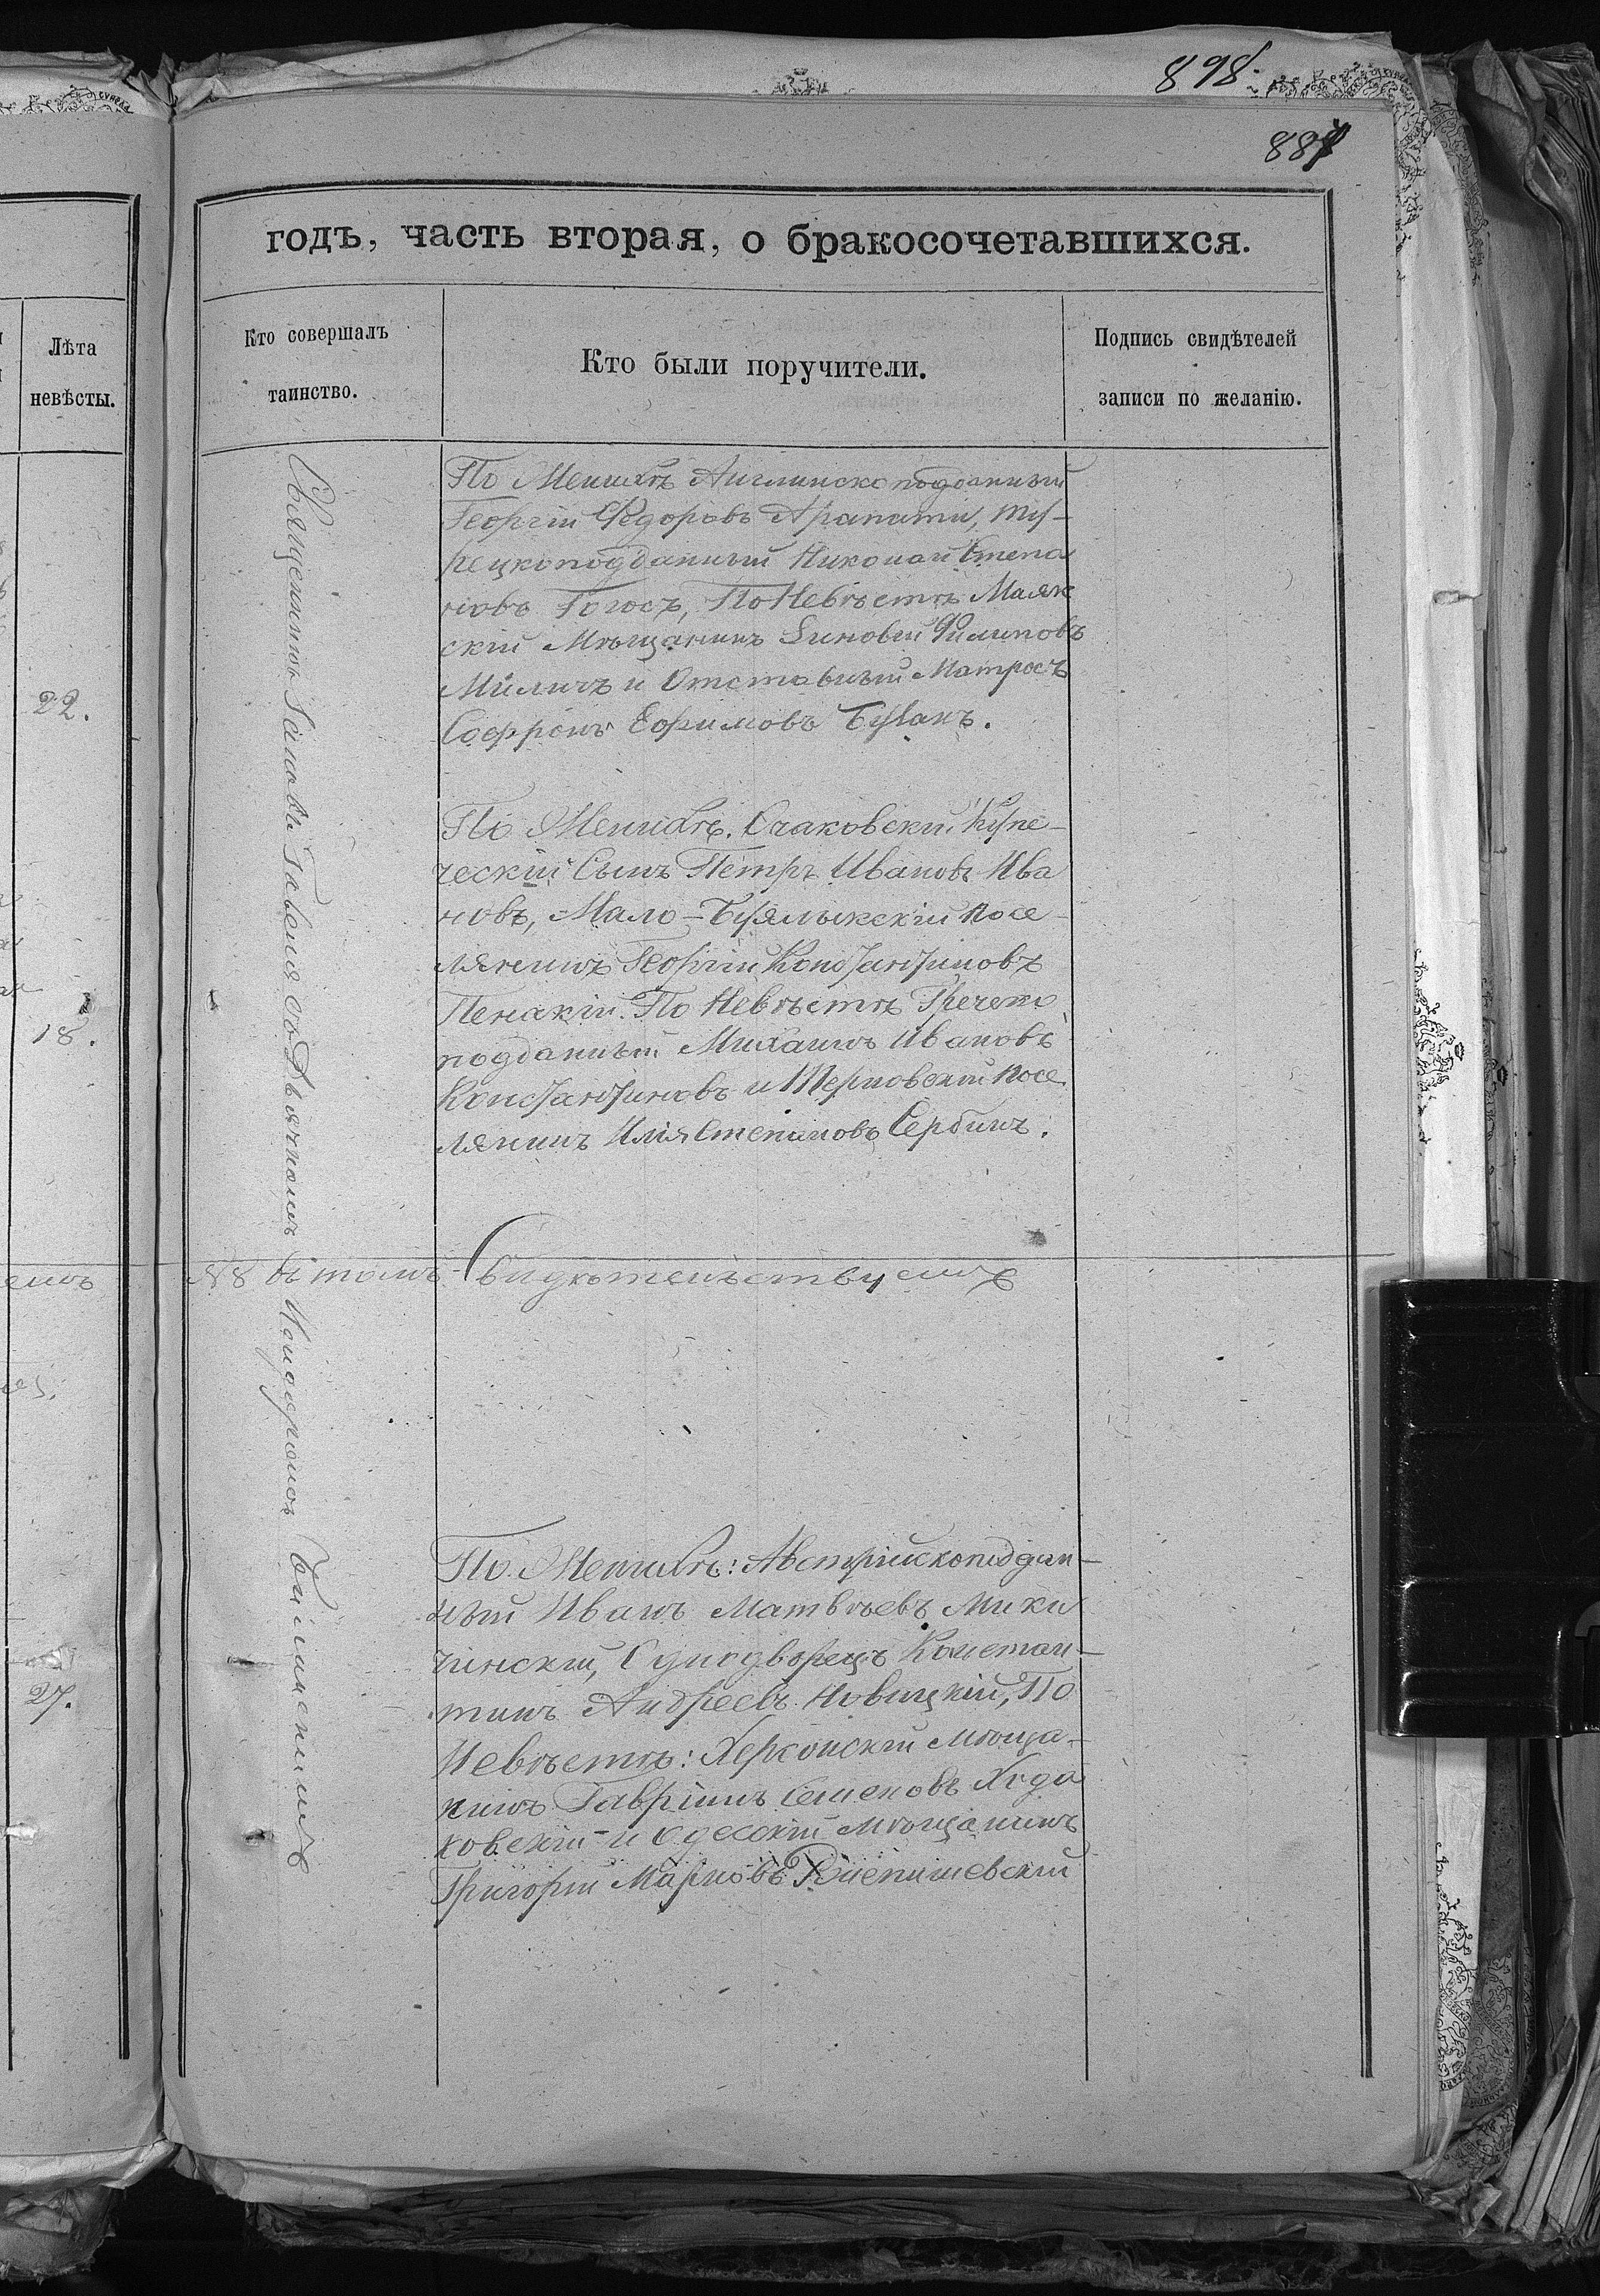 898.
887
годъ, часть вторая, о бракосочетавшихся.
Лѣта
невѣсты.
Кто совершалъ
таинство.
Кто были поручители.
Подпись свидѣтелей
записи по желанію.
22.
18.
27.
Священникъ Іаковъ Гавеля съ Діакономъ
По Женихѣ Англинскоподданный
Георгій Федоровъ Арапати, ту-
рецкоподданный Николай Степа
новъ Гогосъ, По Невѣстѣ Маяк
скій Мѣщанинъ Зиновій Филиповъ
Миличъ и Отставный Матросъ
Софронъ Ефимовъ
По Женихѣ. Очаковскій Купе-
ческій Сынъ Петръ Ивановъ Ива
новъ, Мало-Буялыкскій посе-
лянинъ Георгій Константиновъ
Пенакій. По Невѣстѣ Греческо
подданный Михаилъ Ивановъ
Константиновъ и Терновскій посе
лянинъ Илія Степановъ Сербинъ.
№ 8 въ томъ свидѣтельствуемъ
По Женихѣ: Австрійскоподдан-
ный Иванъ Матвѣевъ Мики
чинскій, Однодворецъ Констан-
тинъ Андреевъ Новицкій, По
Невѣстѣ: Херсонскій мѣща-
нинъ Гавріилъ Семеновъ Хода
ковскій и Одесскій мѣщанинъ
Григорій Марковъ